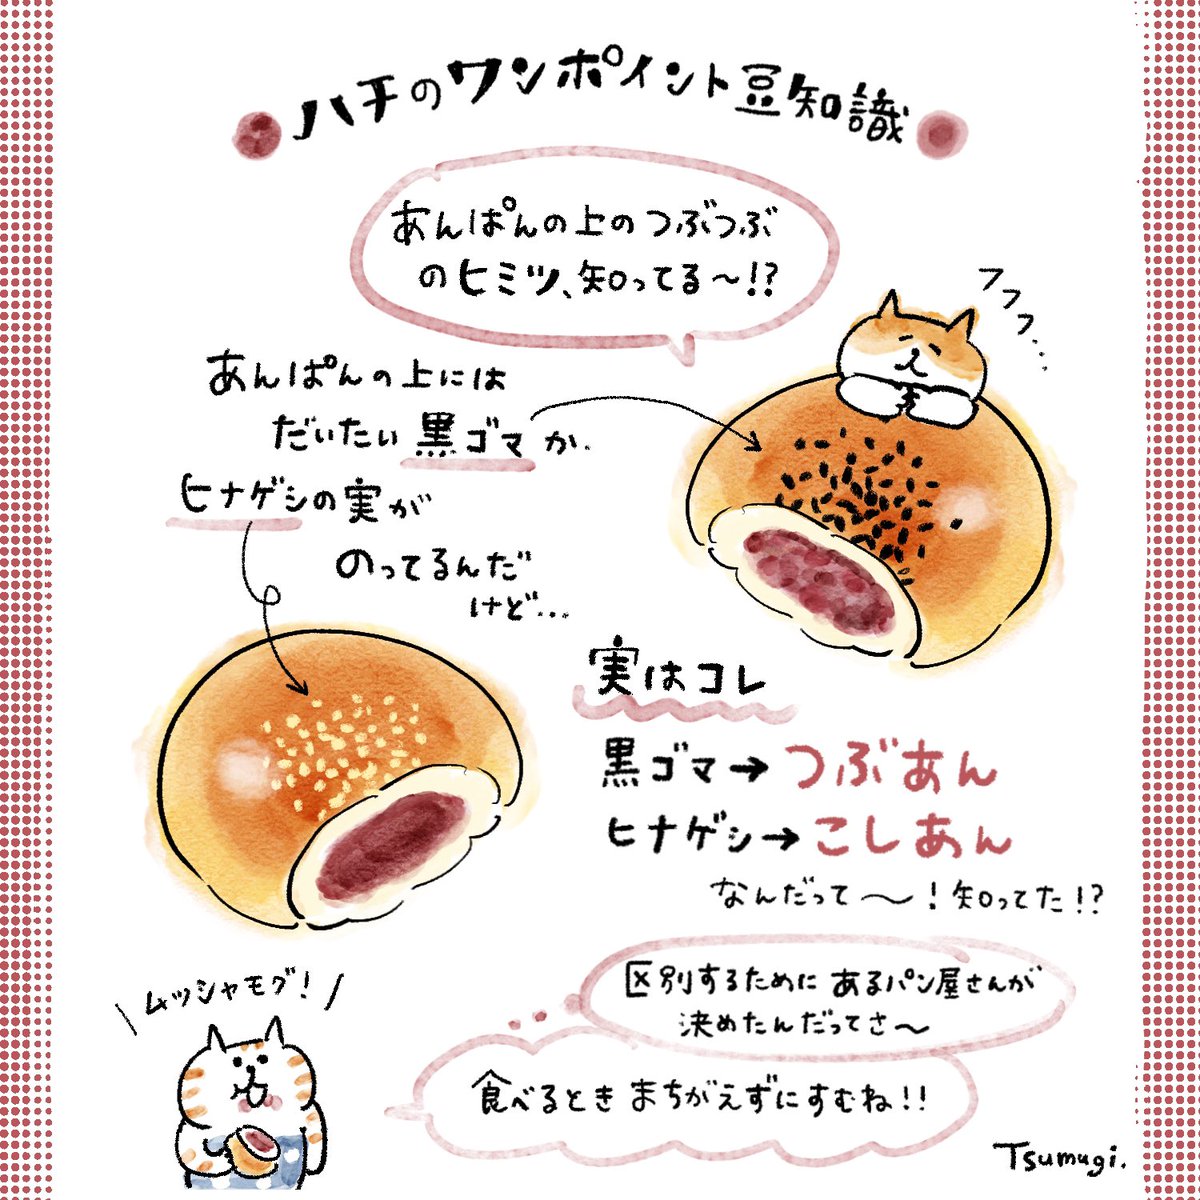 ハチのワンポイント豆知識
あんぱんの上のつぶつぶ
のヒミツ、知ってる〜!?
フフフ...
あんぱんの上には
だいたい黒ゴマか、
ヒナゲシの実が
のってるんだ
けど...
実はコレ
黒ゴマ→つぶあん
ヒナゲシ→こしあん
なんだって〜！知ってた!?
区別するために あるパン屋さんが
決めたんだってさ〜
ムッシャモグ！
食べるとき まちがえずにすむね!!
Tsumugi.